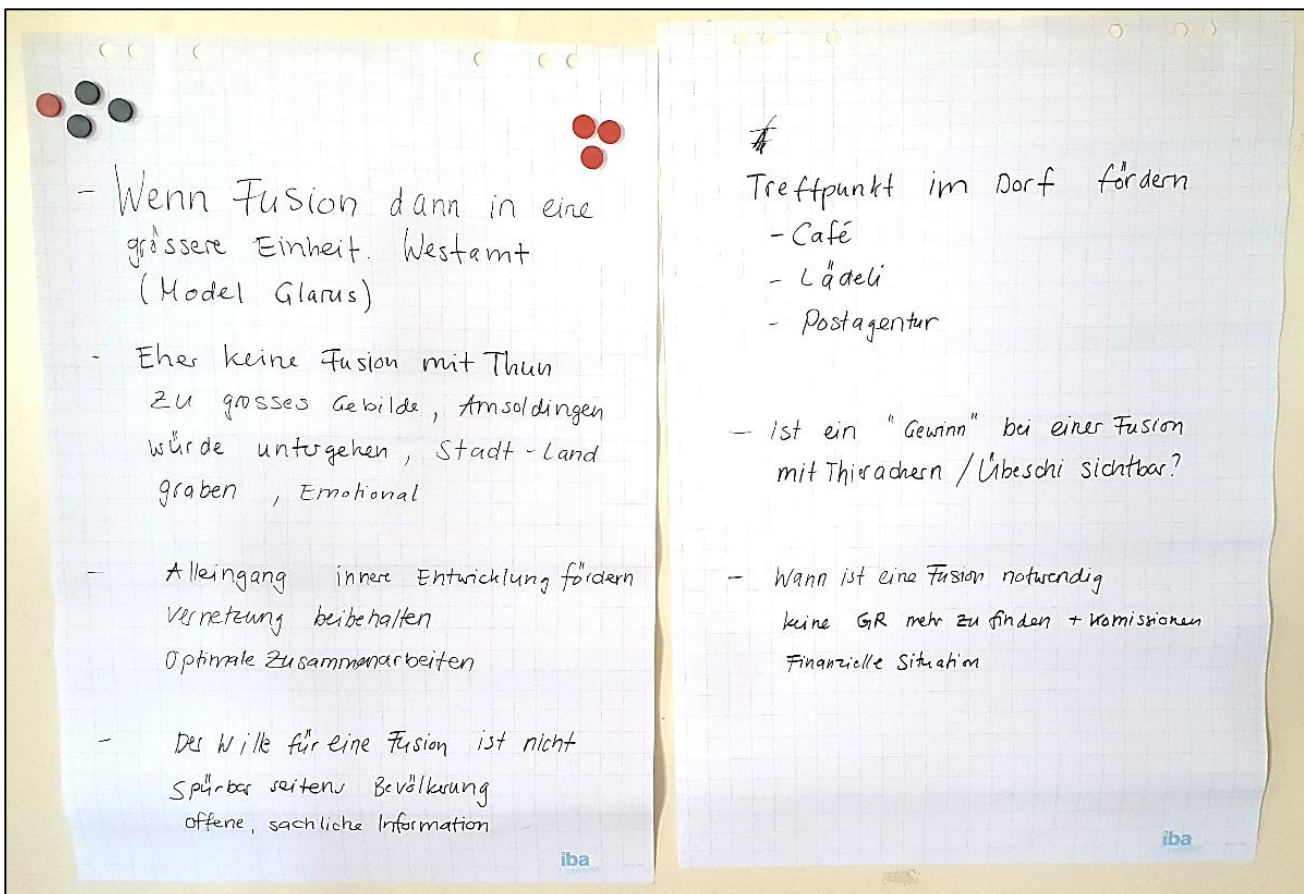 - Wenn Fusion dann in eine
grössere Einheit. Westamt
(Model Glarus)
- Eher keine Fusion mit Thun
zu grosses Gebilde, Amsoldingen
würde untergehen, Stadt-Land
graben, Emotional
- Alleingang innere Entwicklung fördern
Vernetzung beibehalten
Optimale Zusammenarbeiten
- Der Wille für eine Fusion ist nicht
Spürbar seitens Bevölkerung
offene, sachliche Information
iba
Treffpunkt im Dorf fördern
- Café
- Lädeli
- Postagentur
- Ist ein "Gewinn" bei einer Fusion
mit Thierachern / Übeschi sichtbar?
- Wann ist eine Fusion notwendig
keine GR mehr zu finden + Komissionen
Finanzielle Situation
iba